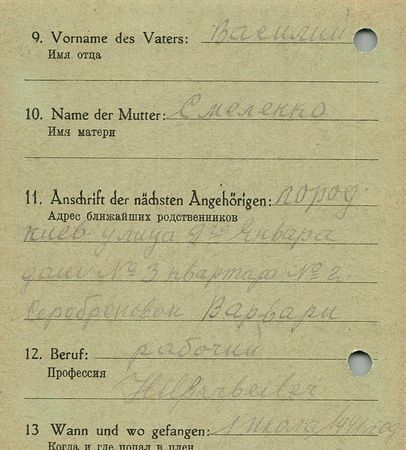 9. Vorname des Vaters: Василий
Имя отца
10. Name der Mutter: Емеленко
Имя матери
11. Anschrift der nächsten Angehörigen: город
Адрес ближайших родственников
Киев улица 9го Января
дом № 3 квартал № 2
Серебреновой Варвари
12. Beruf: рабочий
Профессия
Hilfsarbeiter
13 Wann und wo gefangen: 1941 год
Когда и где попал в плен